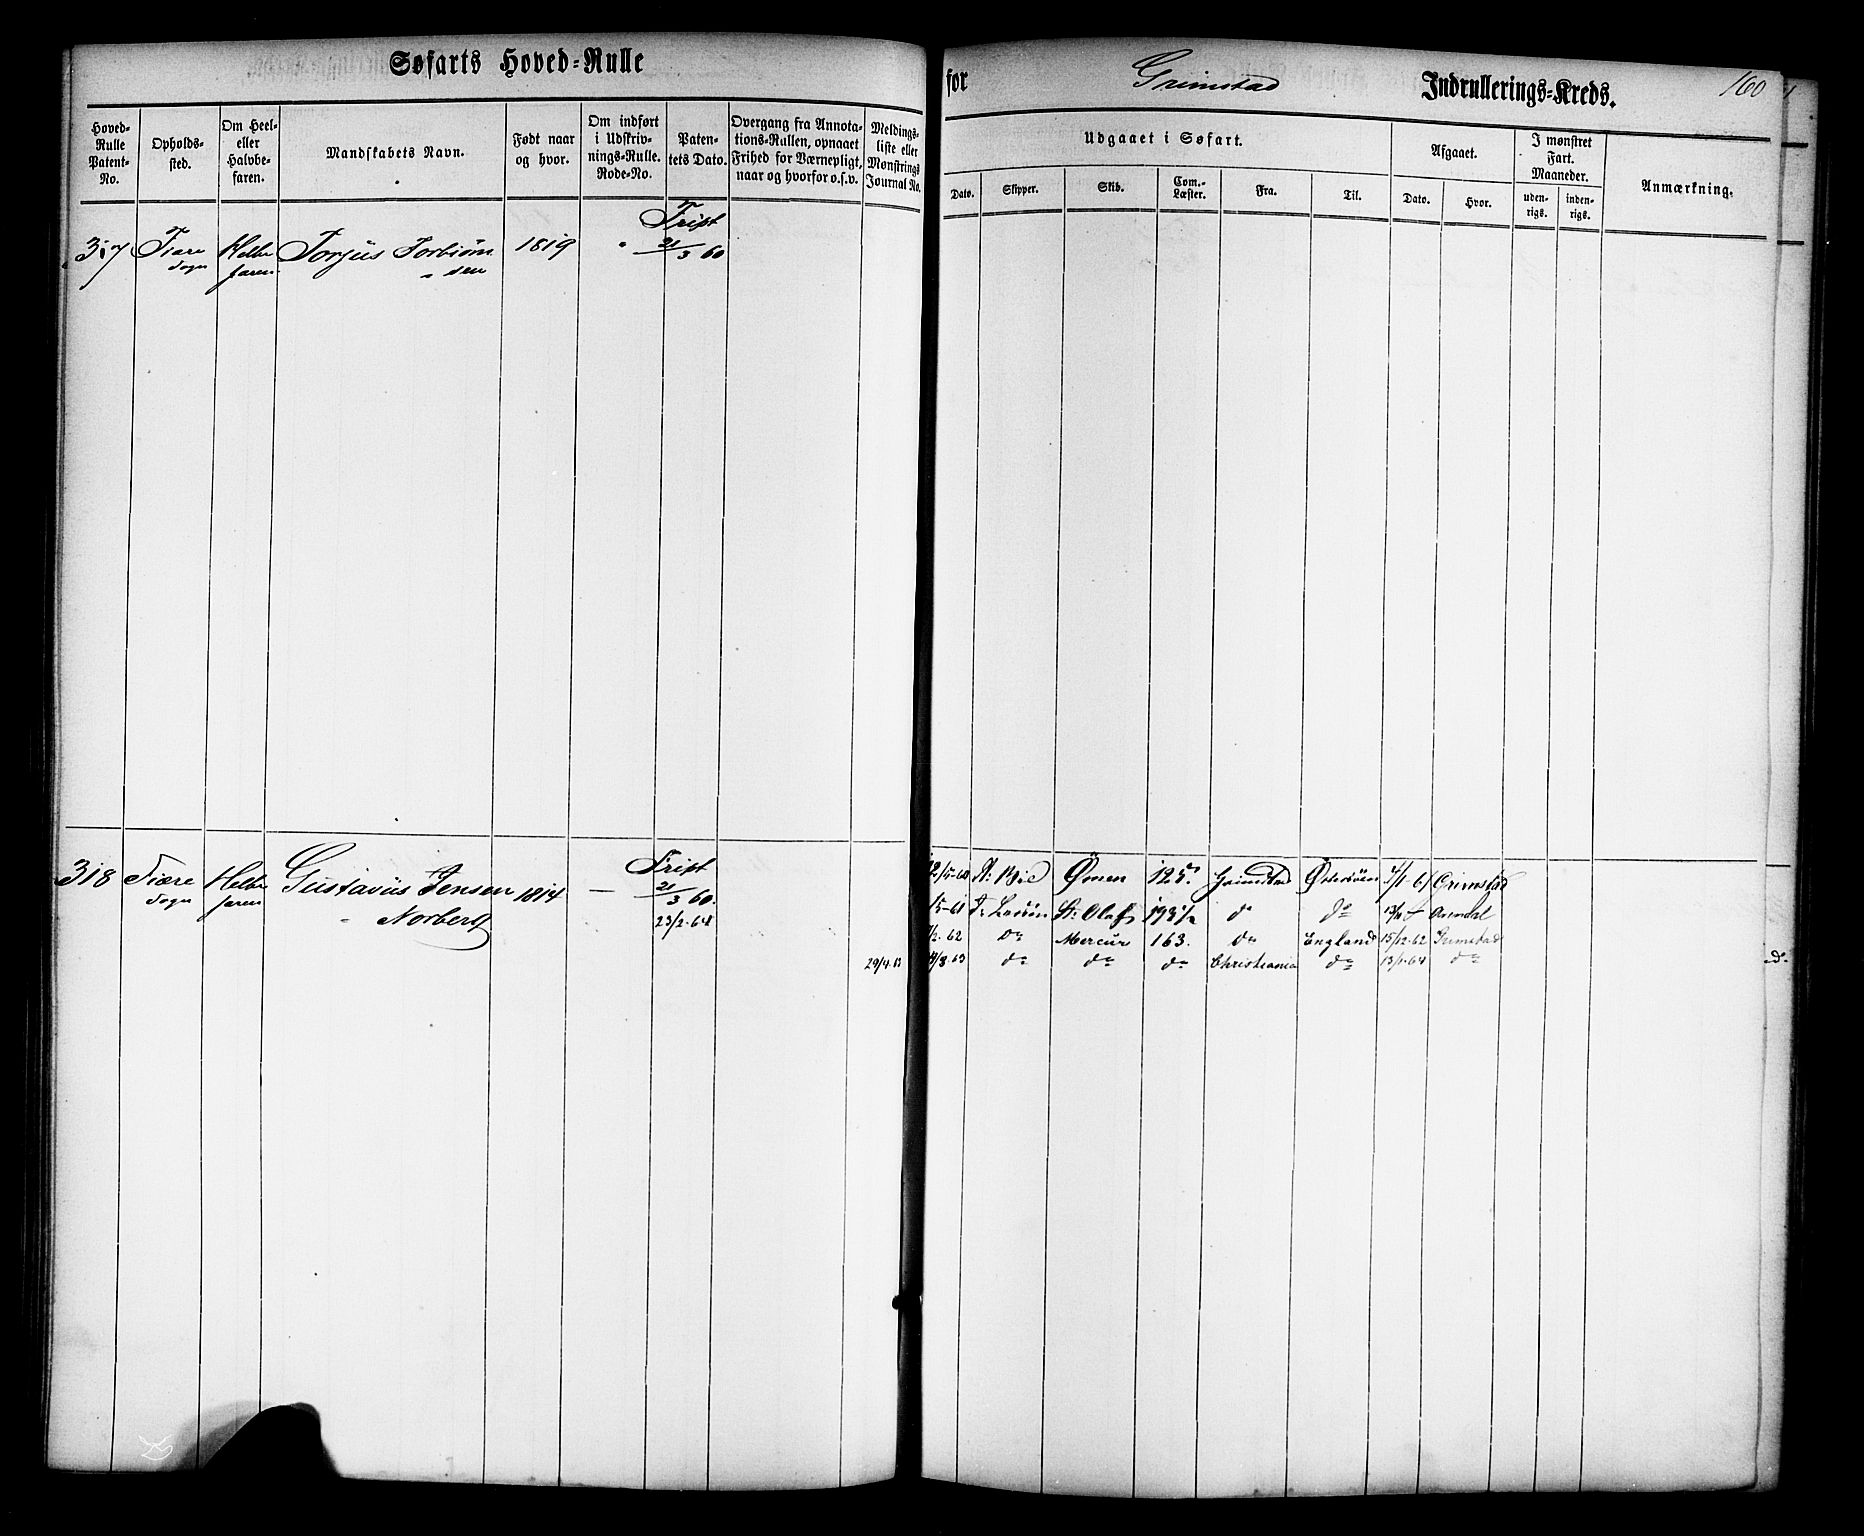 Søfarts Hoved-Rulle
for Grimstad Indrullerings-Kreds. 160
Hoved-Rulle Patent-No.
Opholds-sted.
Om Heel- eller Halvbe-faren.
Mandskabets Navn.
Født naar og hvor.
Om indført i Udskriv-nings-Rulle. Rode-No.
Paten-tets Dato.
Overgang fra Annota-tions-Rullen, opnaaet Frihed for Værnepligt, naar og hvorfor o.s.v.
Meldings-liste eller Mønstrings Journal No.
Udgaaet i Søfart.
Dato. Skipper. Skib. Com.-Læster. Fra. Til.
Afgaaet.
Dato. Hvor.
I mønstret Fart. Maaneder.
uden-rigs. inden-rigs.
Anmærkning.
Fript
317 Fiære Halbe Torjus Torbiørn 1819 21/3 60
Sogn faren sen
Fript
318 Fiære Halbe Gustavus Jensen 1814 — 21/3 60.
Sogn faren Norberg 23/2.64
Bie Ømen 125. Grimstad Østersøen 4/1-61 Grimstad
15-61 St: Olaf do do Arendal
62 do Mercur 163. do England 15/12.62 Grimstad
29/4.63 4/8.63 do do do Christiania do 13/1.64 do